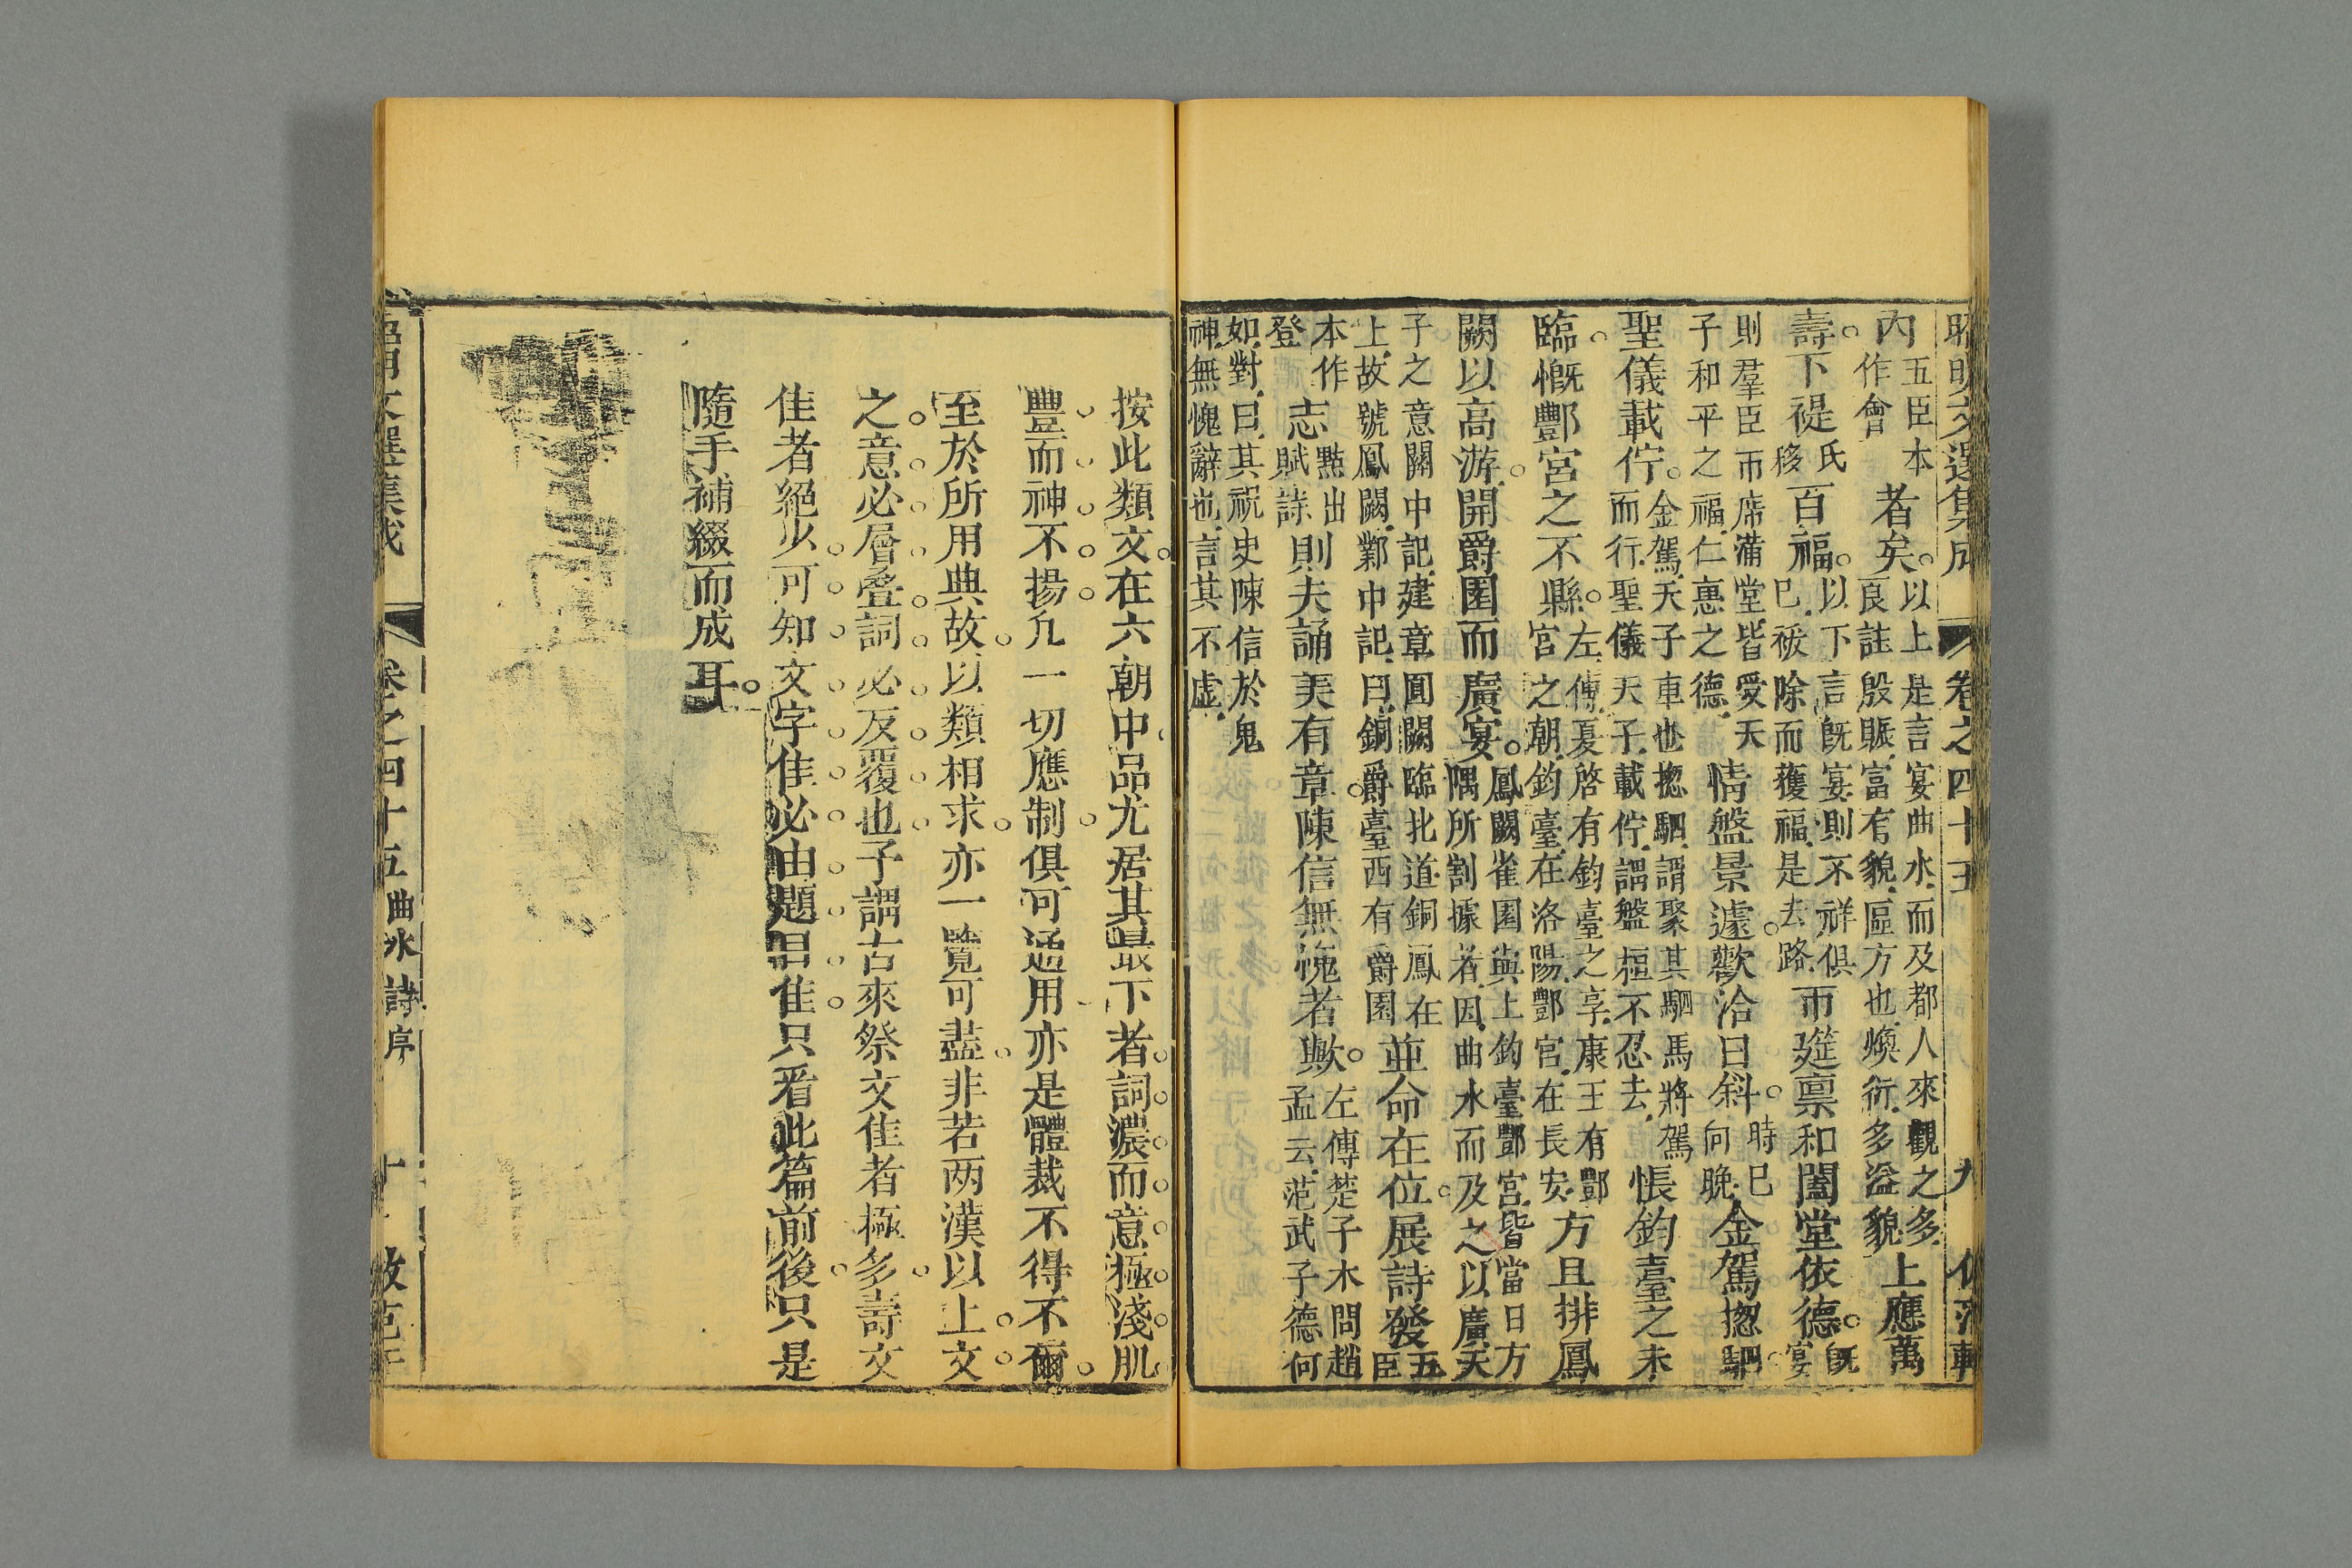 昭明文選集成 卷之四十五 九 仿范軒
內五臣本作會者矣以上是言宴曲水而及都人來觀之多良註殷賑富有貌區方也煥衍多溢貌上應萬
壽下禔氏移百福以下言旣宴則不祥俱已祓除而獲福是去路帀筵禀和闔堂依德旣宴
則羣臣帀席滿堂皆受天子和平之福仁惠之德情盤景遽歡洽日斜時已向晚金駕揔駟
聖儀載佇金駕天子車也揔駟謂聚其駟馬將駕而行聖儀天子載佇謂盤桓不忍去悵鈞臺之未
臨慨酆宮之不縣左傳夏啓有鈞臺之享康王有酆宮之朝鈞臺在洛陽酆宮在長安方且排鳳
闕以高游開爵園而廣宴鳳闕雀園與上鈞臺酆宮皆當日方隅所割據者因曲水而及之以廣天
子之意關中記建章圓闕臨北道銅鳳在上故號鳳闕鄴中記曰銅爵臺西有爵園並命在位展詩發五臣
本作登志點出賦詩則夫誦美有章陳信無愧者歟左傳楚子木問趙孟云范武子德何
如對曰其祝史陳信於鬼神無愧辭也言其不虛
按此類文在六朝中品尤居其最下者詞濃而意極淺肌
豐而神不揚凡一切應制俱可通用亦是體裁不得不爾
至於所用典故以類相求亦一覽可盡非若两漢以上文
之意必層叠詞必反覆也予謂古來祭文佳者極多壽文
佳者絕少可知文字佳必由題目佳只看此篇前後只是
隨手補綴而成耳
昭明文選集成 卷之四十五 曲水詩序 十